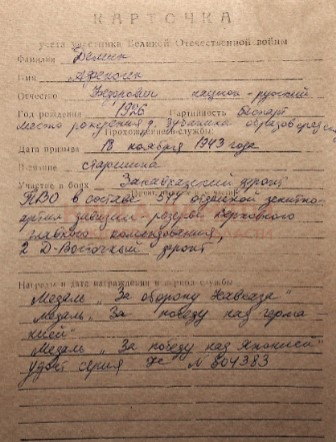 КАРТОЧКА
учета участника Великой Отечественной войны
Фамилия Демин
Имя
Отчество Федорович национ-русский
Год рождения 1926 Партийность беспарт
место рождения д.
Прохождение службы
Дата призыва 13 ноября 1943 года
Звание старшина
Участие в боях Закавказский фронт
в составе 577 зенитно-
артил дивизии резерва верховного
главного командования,
2 Д-Восточный фронт
Награды и дата награждения в период службы
Медаль "За оборону Кавказа"
Медаль "За победу над Герма
нией"
Медаль "За победу над Японией"
удост серия № 804383